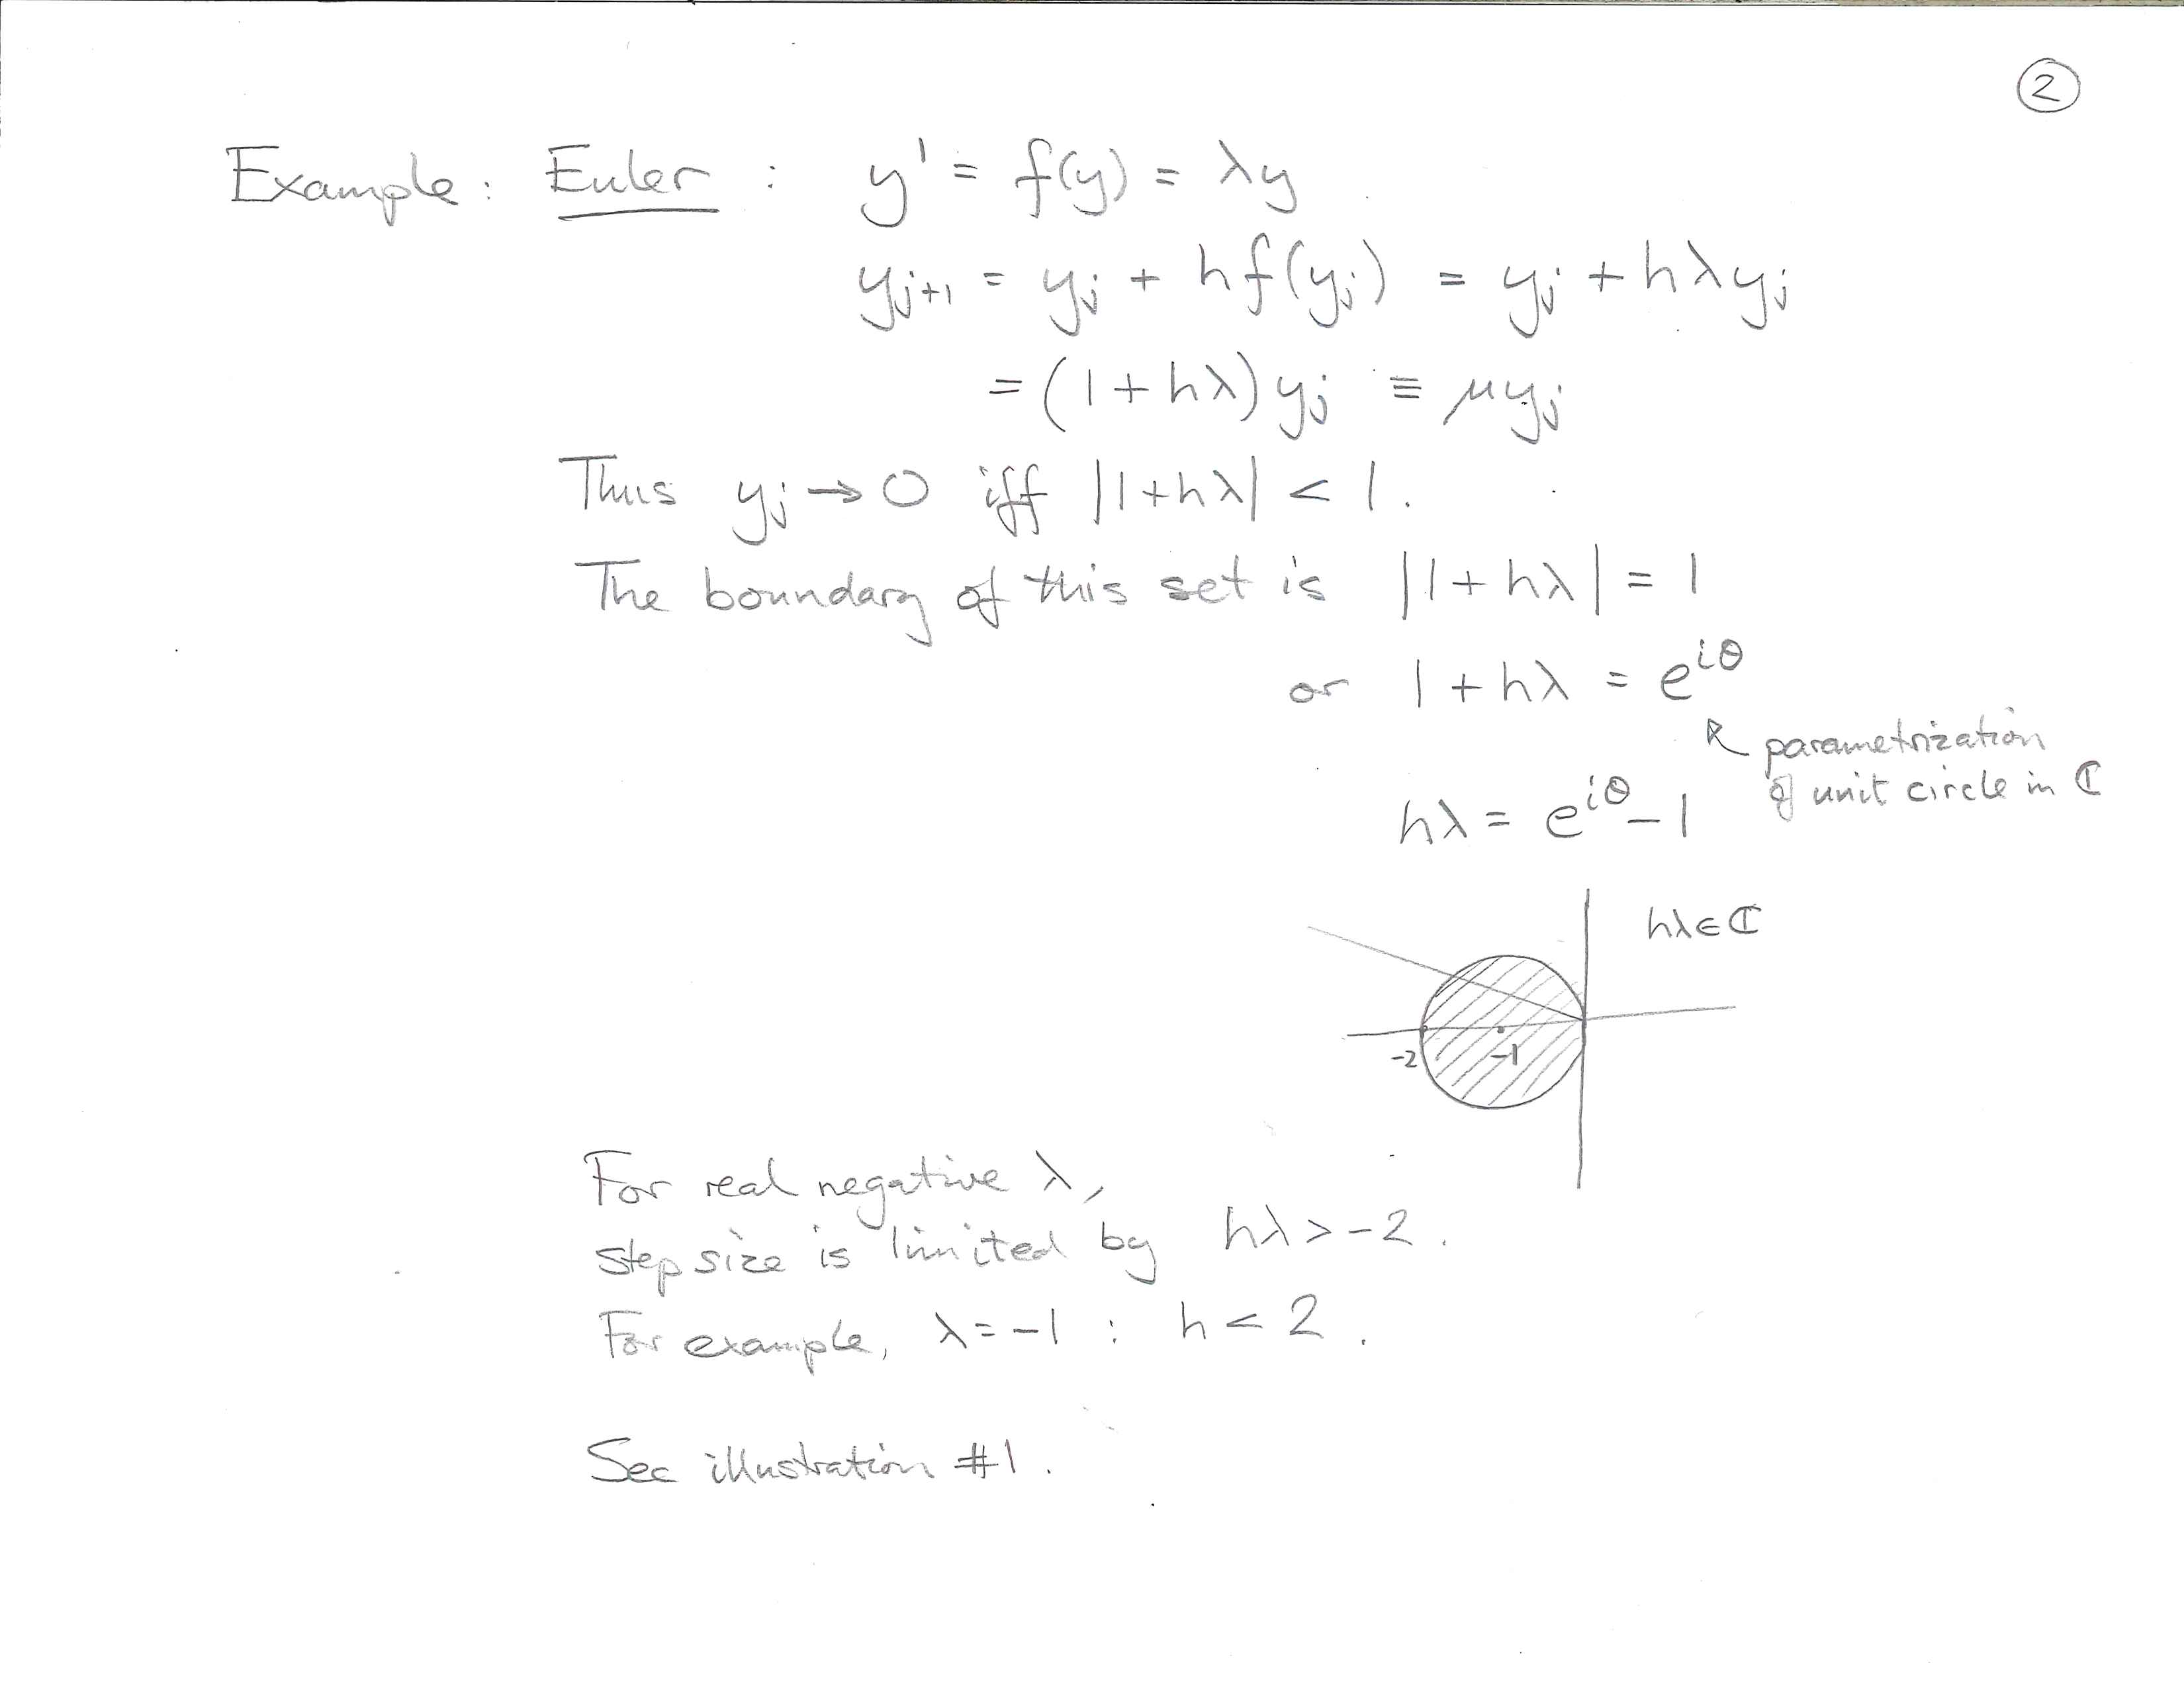 2
Example: Euler : y' = f(y) = λy
y_{j+1} = y_j + hf(y_j) = y_j + hλy_j
= (1+hλ)y_j ≡ μy_j
Thus y_j → 0 iff |1+hλ| < 1.
The boundary of this set is |1+hλ| = 1
or 1+hλ = e^{iθ}
parametrization
of unit circle in ℂ
hλ = e^{iθ} - 1
hλ∈ℂ
-2 -1
For real negative λ,
step size is limited by hλ > -2.
For example, λ = -1 : h < 2.
See illustration #1.